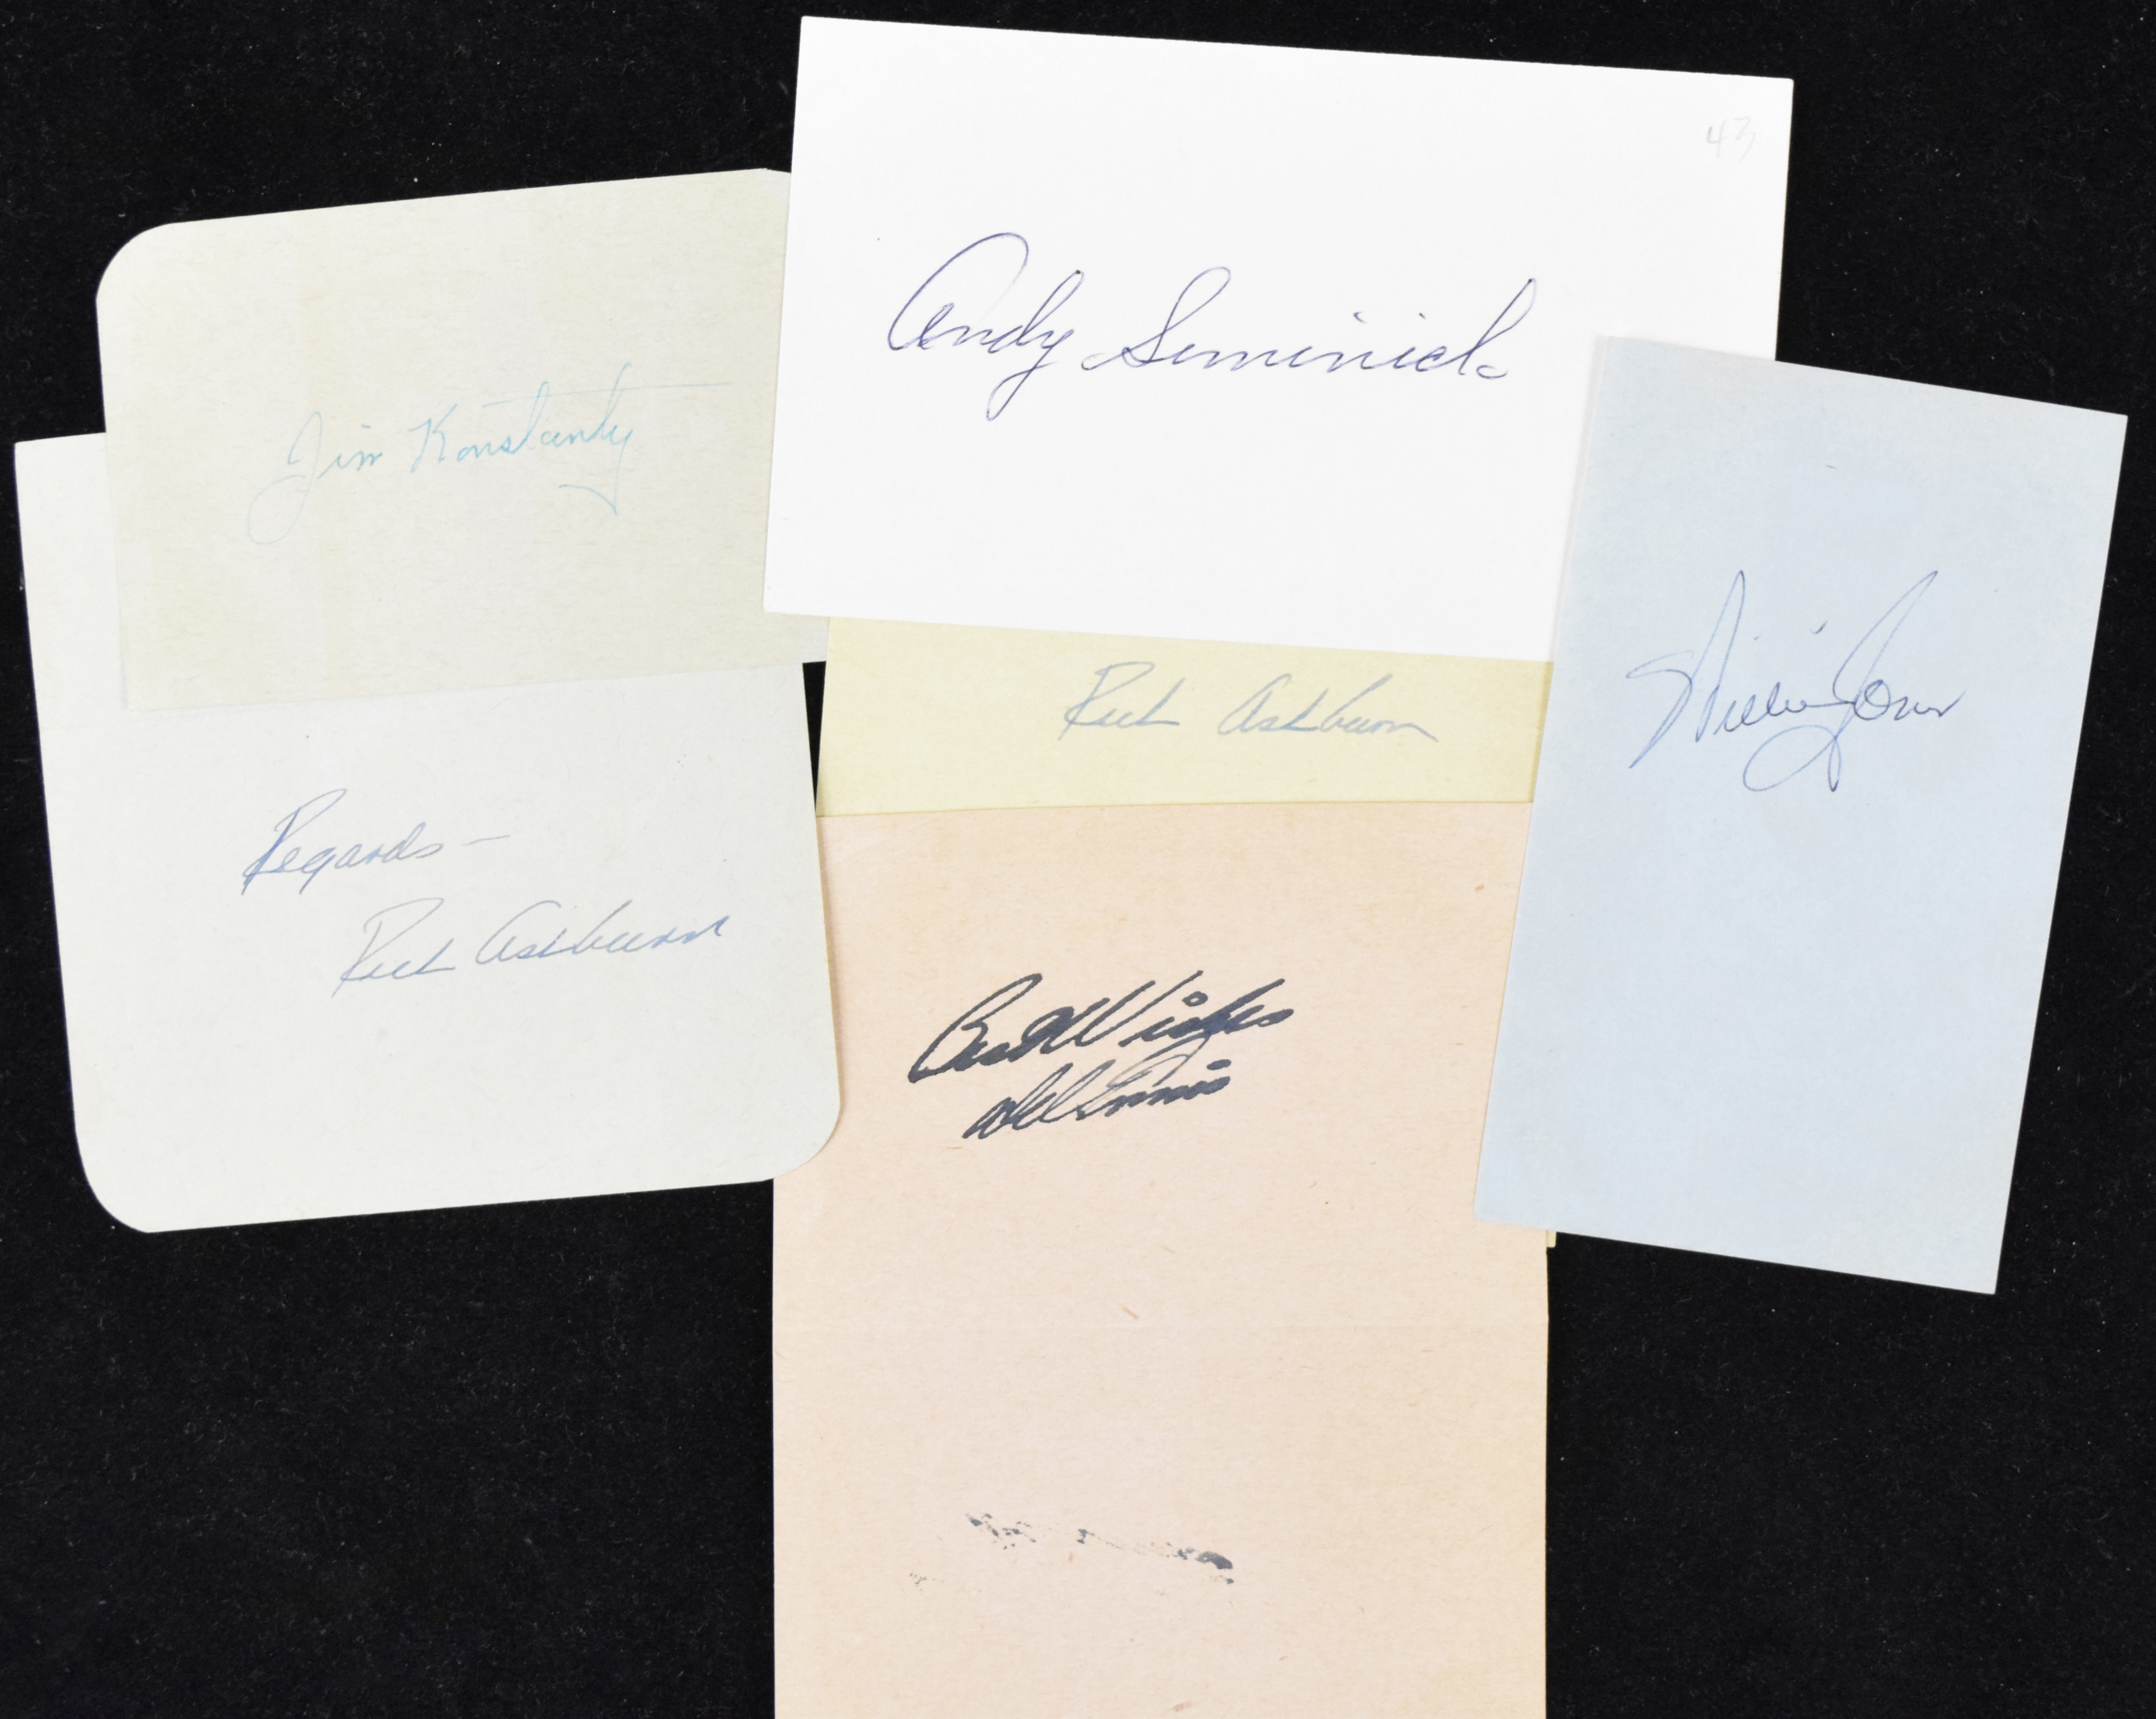 43
Andy Seminick
Jim Konstanty
Rich Ashburn
Willie Jones
Regards -
Rich Ashburn
Best Wishes
Del Ennis